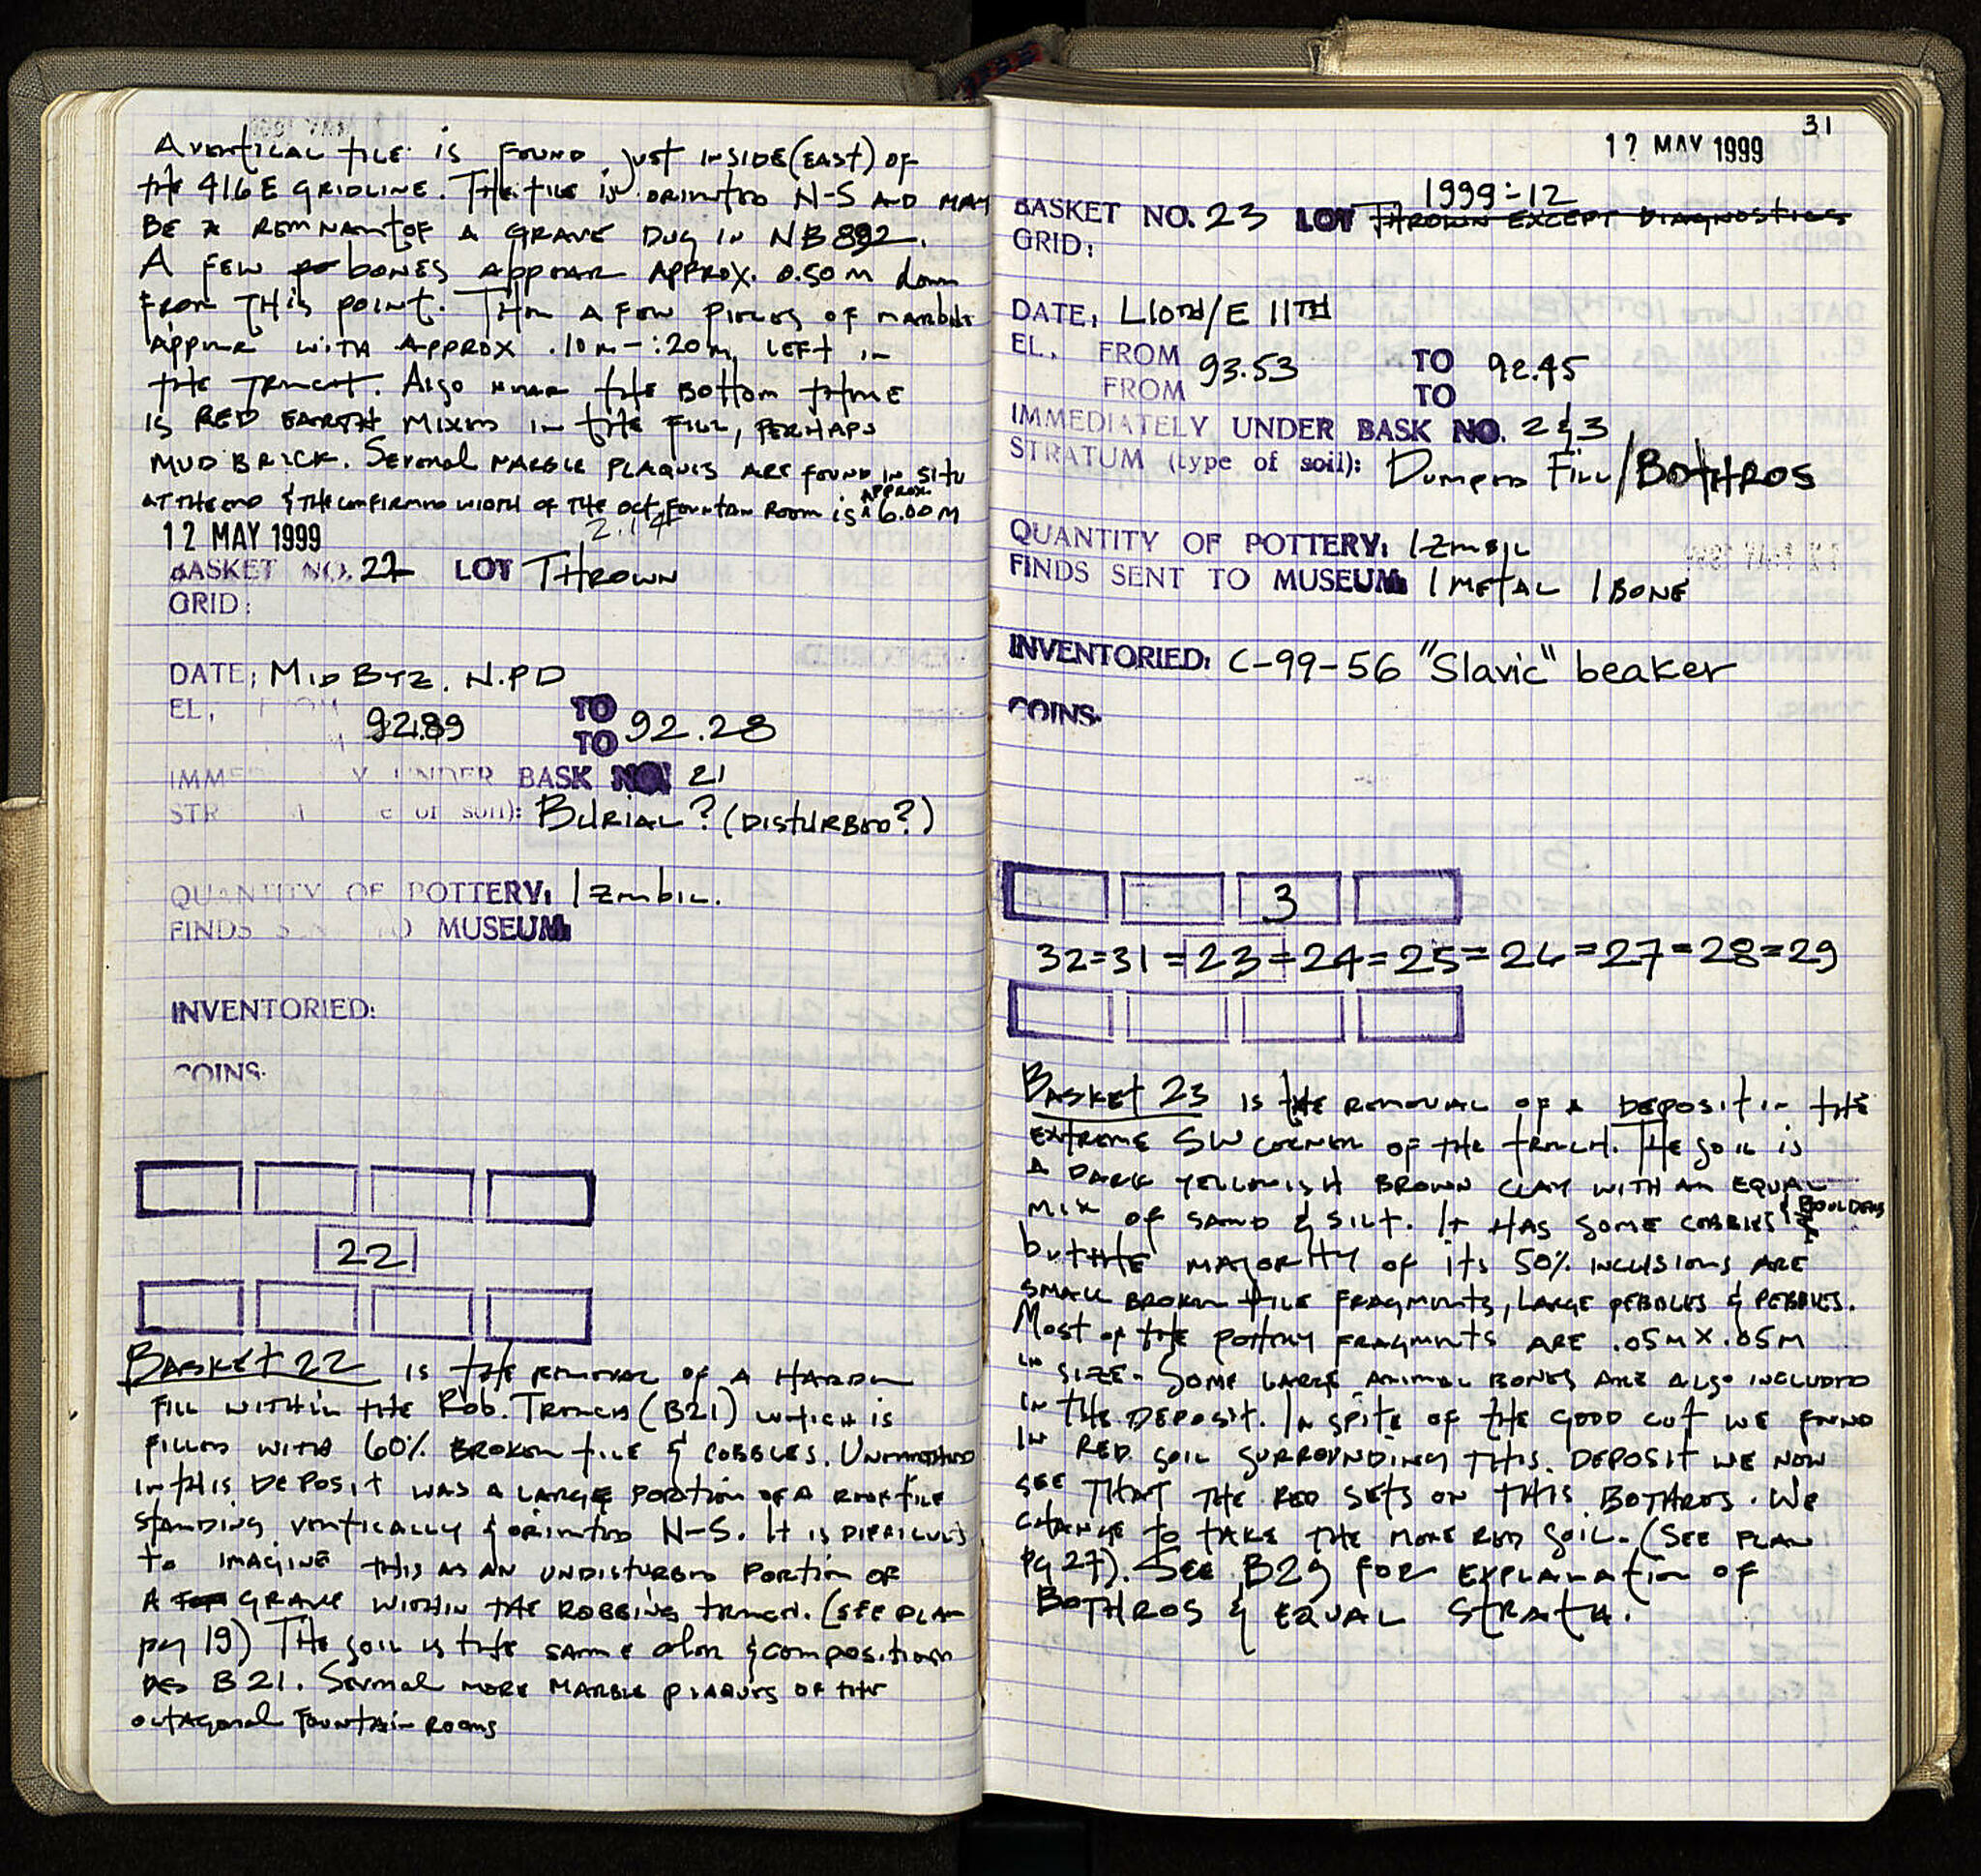 A vertical tile is found just inside (east) of
the 416 E gridline. The tile is oriented N-S and may
be a remnant of a grave dug in NB 892.
A few bones appear approx. 0.50 m down
from this point. Then a few pieces of marble
appear with approx .10 m - .20 m left in
the trench. Also near the bottom there
is RED EARTH mixed in the fill, perhaps
mud brick. Several marble plaques are found in situ
at the end & the confirmed width of the oct. fountain room is approx. 6.00 m
2.14
12 MAY 1999
BASKET NO. 22 LOT THROWN
GRID:
DATE; MID BYZ. N.P.D
EL, FROM 92.89 TO 92.28
TO
IMMED Y UNDER BASK NO. 21
STR e of soil): BURIAL? (DISTURBED?)
QUANTITY OF POTTERY: 1 zmbil.
FINDS SENT TO MUSEUM:
INVENTORIED:
COINS:
22
BASKET 22 is the removal of a harder
fill within the Rob. Trench (B21) which is
filled with 60% broken tile & cobbles. Unearthed
in this deposit was a large portion of a roof tile
standing vertically & oriented N-S. It is difficult
to imagine this as an undisturbed portion of
a grave within the robbing trench. (see plan
pg 19) The soil is the same color & composition
as B21. Several more marble plaques of the
octagonal fountain rooms
31
12 MAY 1999
1999-12
BASKET NO. 23 LOT THROWN EXCEPT DIAGNOSTICS
GRID:
DATE, L10TH/E 11TH
EL, FROM 93.53 TO 92.45
FROM TO
IMMEDIATELY UNDER BASK NO. 2 & 3
STRATUM (type of soil): Dumped Fill/BOTHROS
QUANTITY OF POTTERY, 1 zmbil
FINDS SENT TO MUSEUM: 1 METAL 1 BONE
INVENTORIED: C-99-56 "Slavic" beaker
COINS:
3
32=31=23=24=25=26=27=28=29
BASKET 23 is the removal of a deposit in the
extreme SW corner of the trench. The soil is
a dark yellowish brown clay with an equal
mix of sand & silt. It has some cobbles & boulders
but the majority of its 50% inclusions are
small broken tile fragments, large pebbles & pebbles.
Most of the pottery fragments are .05m x .05m
in size. Some large animal bones are also included
in the deposit. In spite of the good cut we found
in red soil surrounding this deposit we now
see that the red sets on this bothros. We
change to take the more red soil. (See plan
pg 27). See B29 for explanation of
BOTHROS & EQUAL STRATA.